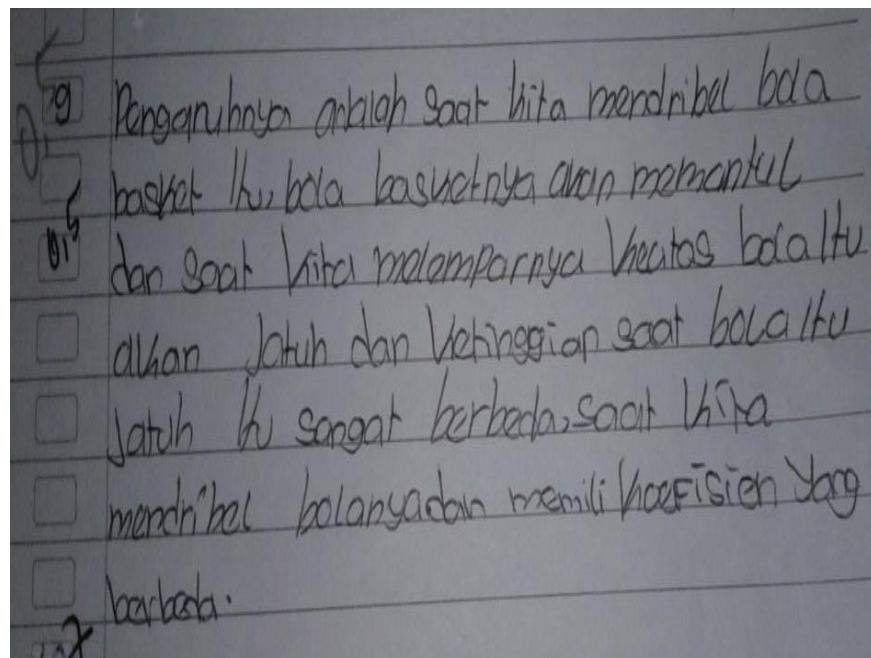 9 Pengaruhnya adalah saat kita mendribel bola
basket itu, bola basketnya akan memantul
dan saat kita melemparnya keatas bola itu
akan jatuh dan ketinggian saat bola itu
jatuh itu sangat berbeda, saat kita
mendribel bolanya dan memili koefisien yang
berbeda.